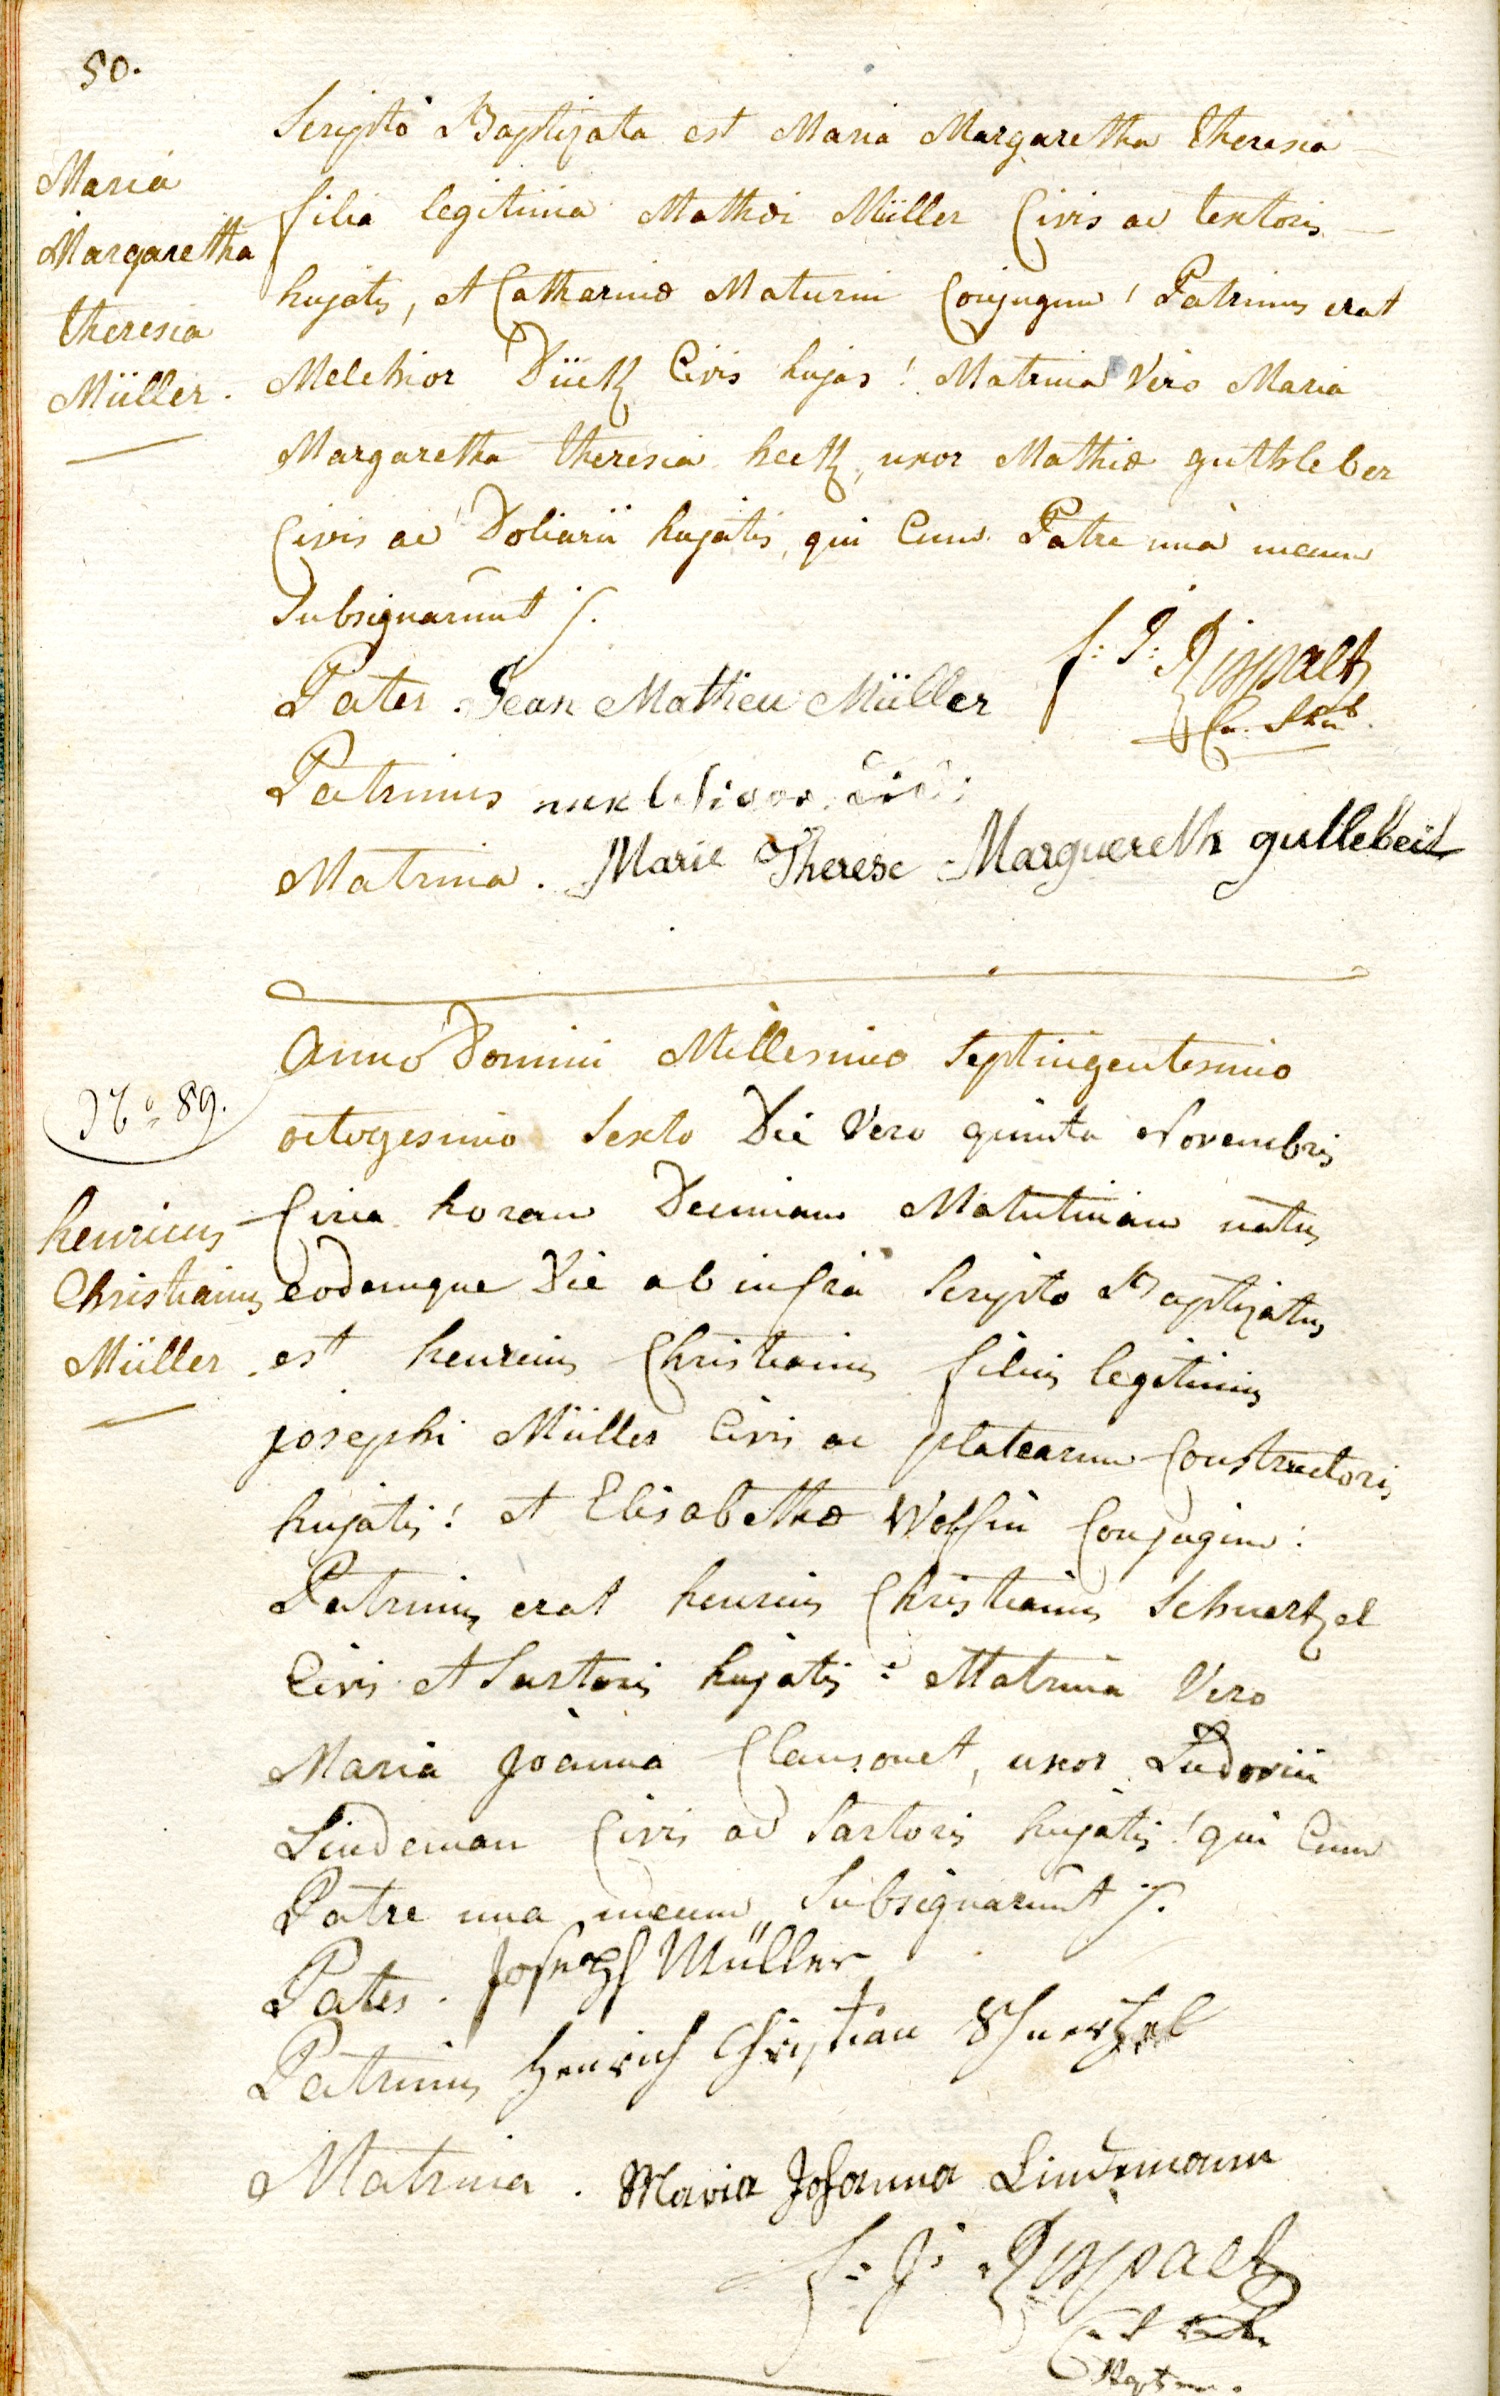 50.
Maria
Margaretha
theresia
Müller.
Scripto Baptizata est Maria Margaretha theresia
filia legitima Mathæi Müller Civis ac textoris
hujatis, et Catharinæ Maturni Conjugum! Patrinus erat
Melchior Düctz Civis hujas! Matrina Vero Maria
Margaretha theresia hectz, uxor Mathiæ guthleber
Civis ac Doliarii hujatis, qui Cum Patre unà mecum
Subsignarunt ./.
f: J: Rispaltz
Pater. Jean Mathieu Müller
Patrinus
Matrina. Marie Therese Marguereth gullebeil
Anno Domini Millesimo Septingentesimo
No 89.
octogesimo Sexto Die Vero quinta Novembris
henricus
Christianus
Müller.
Circa horam Decimam Matutinam natus
eodemque Die ab infra Scripto Baptizatus
est henricus Christianus filius legitimus
josephi Müller Civis ac platearum Constructoris
hujatis! et Elisabethæ Wolffin Conjugum:
Patrinus erat henricus Christianus Schuertzel
Civis et Sartoris hujatis: Matrina Vero
Maria joanna Clausonet, uxor Ludovici
Lindeman Civis ac Sartoris hujatis! qui Cum
Patre una mecum Subsignarunt ./.
Pater. Joseph Müller
Patrinus Henrich Christian Schuertzel
Matrina. Maria Johanna Lindemann
f: J: Rispaltz